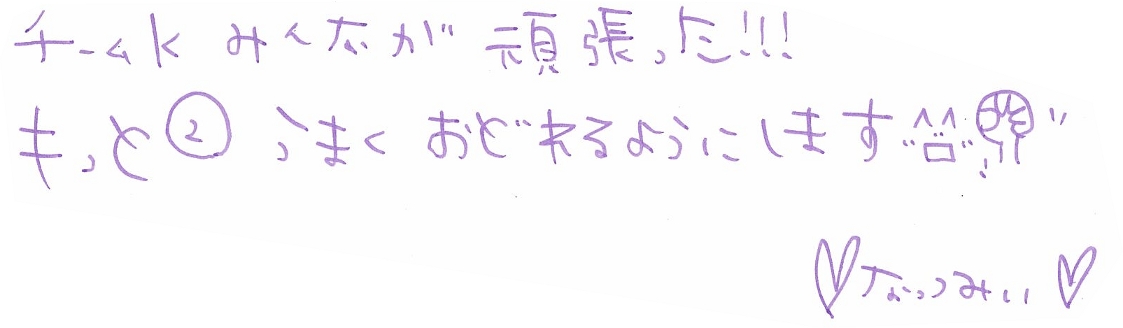 チームK みんなが 頑張った!!!
もっと② うまく おどれるようにします
♡なっつみぃ♡